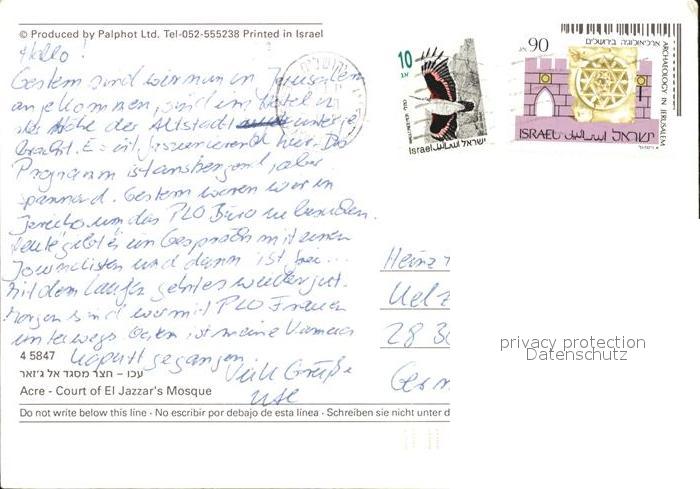 © Produced by Palphot Ltd. Tel-052-555238 Printed in Israel
Hallo!
Gestern sind wir nun in Jerusalem
angekommen, sind im Hotel in
der Nähe der Altstadt unterge
bracht. Es ist faszinierend hier. Das
Programm ist anstrengend, aber
spannend. Gestern waren wir in
Jericho um das PLO Büro zu besuchen.
Heute gibt es ein Gespräch mit einem
Journalisten und dann ist frei...
Mit dem Laufen geht es wieder gut.
Morgen sind wir mit PLO Frauen
unterwegs. ist meine Kamera
kaputt gegangen.
Viele Grüße
Ute
10
אג
Israel اسرائيل ישראל
90 אג
ארכיאולוגיה בירושלים
ARCHAEOLOGY IN JERUSALEM
ISRAEL اسرائيل ישראל
ירושלים
Heinz
Uelz
28 3
Germ
privacy protection
Datenschutz
4 5847
עכו - חצר מסגד אל ג'זאר
Acre - Court of El Jazzar's Mosque
Do not write below this line · No escribir por debajo de esta línea · Schreiben sie nicht unter d